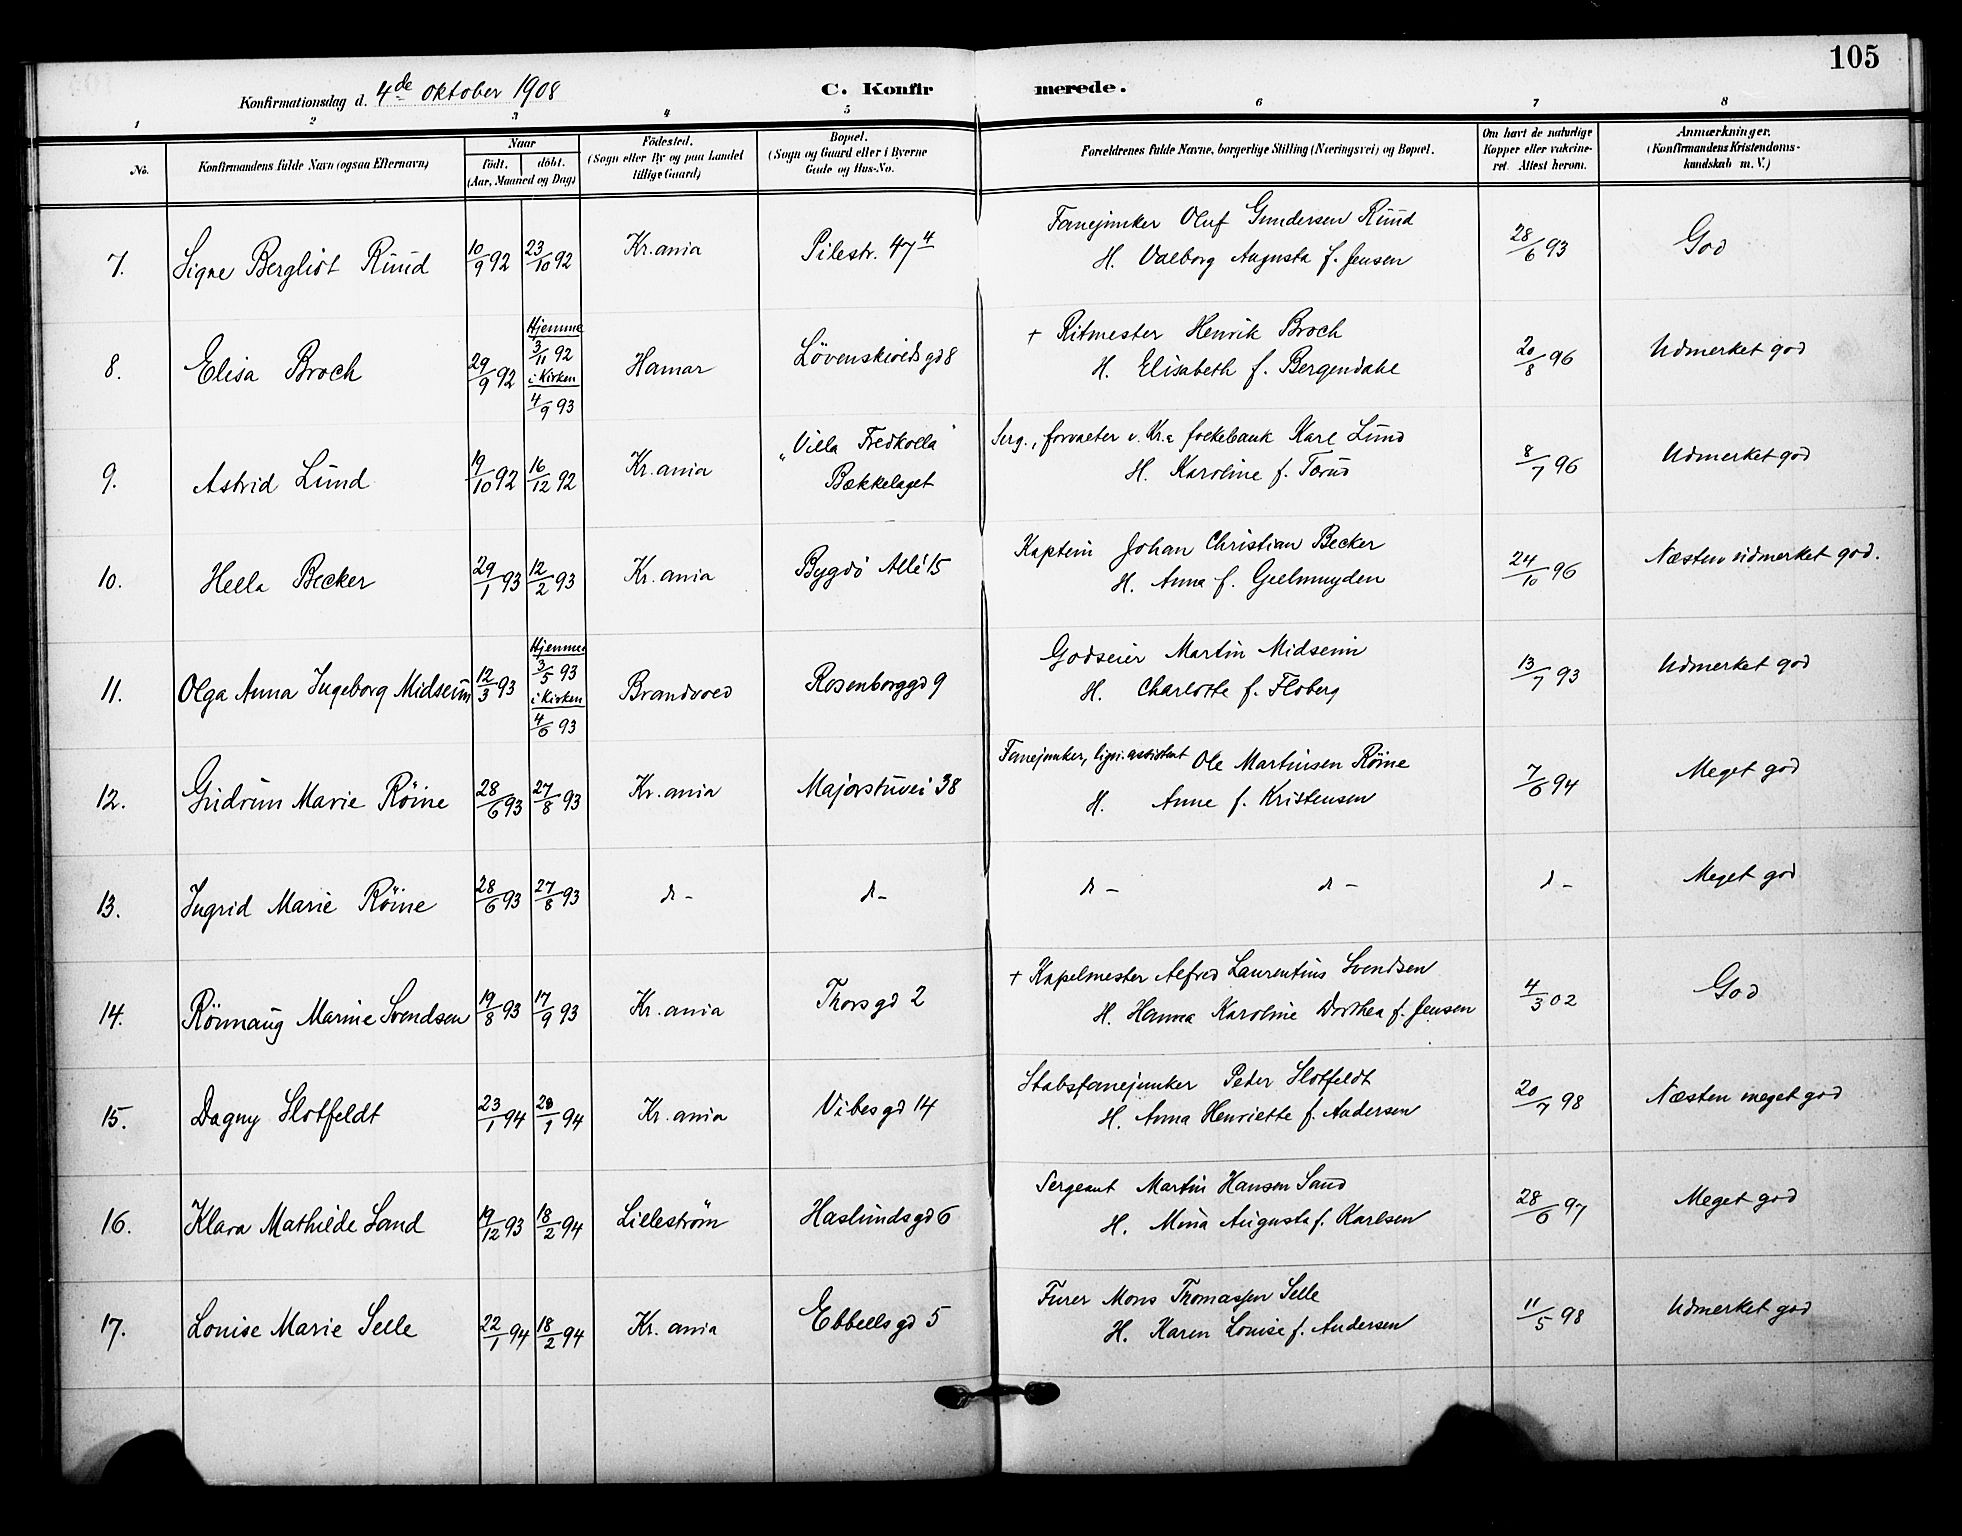 105
Konfirmationsdag d. 4de oktober 1908
C. Konfirmerede.
1 2 3 4 5 6 7 8
No.
Konfirmandens fulde Navn (ogsaa Efternavn)
Naar
födt. döbt.
(Aar, Maaned og Dag)
Födested.
(Sogn eller By og paa Landet
tillige Gaard)
Bopæl.
(Sogn og Gaard eller i Byerne
Gade og Hus-No.
Forældrenes fulde Navne, borgerlige Stilling (Næringsvei) og Bopæl.
Om havt de naturlige
Kopper eller vakcine-
ret. Attest herom.
Anmærkninger.
(Konfirmandens Kristendoms-
kundskab m. V.)
7. Signe Bergliot Ruud 10/9 92 23/10 92 Kr.ania Pilestr. 47 4 Fanejunker Oluf Gundersen Ruud 28/6 93 God
H. Valborg Augusta f. Jensen
8. Elisa Broch 29/9 92 Hjemme 3/11 92 i Kirken 4/9 93 Hamar Løvenskiolds gd 8 + Ritmester Henrik Broch 20/8 96 Udmerket god
H. Elisabeth f. Bergendahl
9. Astrid Lund 19/10 92 16/12 92 Kr.ania "Villa Fredkolla" Bækkelaget Serg., forvalter v. Kr.a folkebank Karl Lund 8/7 96 Udmerket god
H. Karoline f. Torud
10. Hella Becker 29/1 93 12/2 93 Kr.ania Bygdö Allé 15 Kaptein Johan Christian Becker 24/10 96 Næsten udmerket god.
H. Anna f. Geelmuyden
11. Olga Anna Ingeborg Midseim 12/3 93 Hjemme 3/5 93 i Kirken 4/6 93 Brandvold Rosenborggd 9 Godseier Martin Midseim 13/7 93 Udmerket god
H. Charlotte f. Floberg
12. Gudrun Marie Röine 28/6 93 27/8 93 Kr.ania Majorstuvei 38 Fanejunker, lign.assistent Ole Martinsen Röine 7/6 94 Meget god
H. Anne f. Kristensen
13. Ingrid Marie Röine 28/6 93 27/8 93 d- d- d- d- d- Meget god
14. Rönnaug Marine Svendsen 19/8 93 17/9 93 Kr.ania Thorsgd 2 + Kapelmester Alfred Laurentius Svendsen 4/3 02 God
H. Hanna Karoline Dorthea f. Jensen
15. Dagny Slotfeldt 23/1 94 /1 94 Kr.ania Vibesgd 14 Stabsfanejunker Peder Slotfeldt 20/7 98 Næsten meget god
H. Anna Henriette f. Andersen
16. Klara Mathilde Sand 19/12 93 18/2 94 Lilleström Haslundsgd 6 Sergeant Martin Hansen Sand 28/6 97 Meget god
H. Mina Augusta f. Karlsen
17. Louise Marie Selle 22/1 94 18/2 94 Kr.ania Ebbellsgd 5 Furer Mons Thomassen Selle 11/5 98 Udmerket god
H. Karen Louise f. Andersen